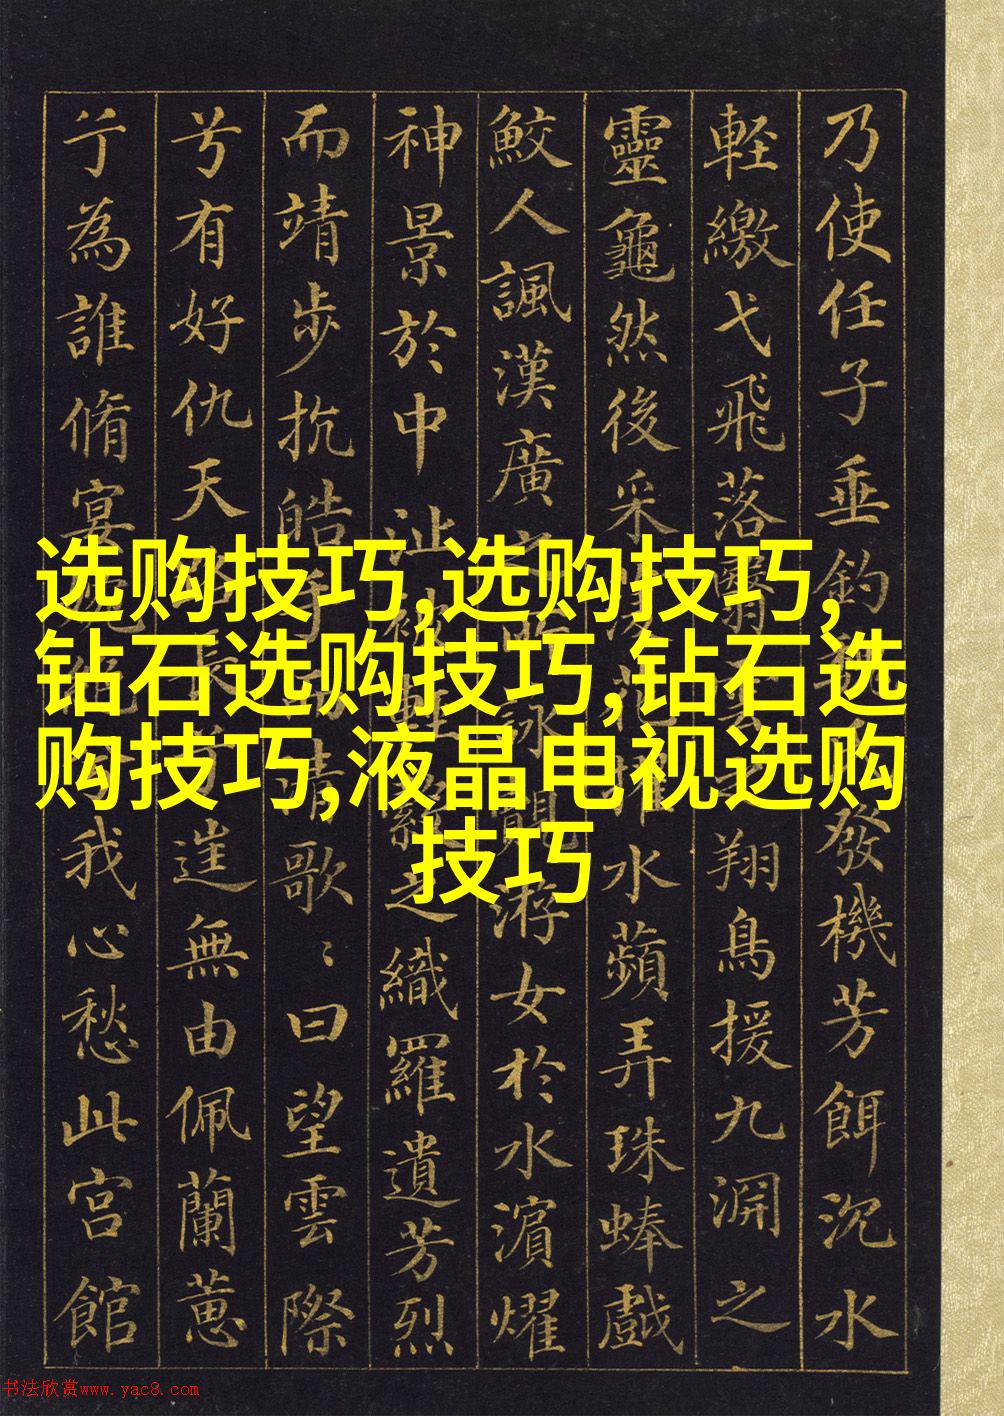 选购技巧,选购技巧,
钻石选购技巧,钻石选
购技巧,液晶电视选购
技巧
乃使任子垂釣發機芳餌沉水
輕繳弋飛落翔鳥援九淵之
靈龜然後采水蘋弄珠蚌戲
鮫人諷漢廣詠覿游女於水濱耀
神景於中沚之織羅遺芳烈
而靖步抗皓清歌〻曰望雲際
兮有好仇天長無由佩蘭蕙
兮為誰脩宴我心愁此宮館
书法欣赏www.yac8.com